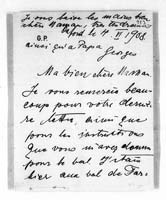 Je vous baise les mains bien
chère Maman
Kha 4 XI 1908.
G.P.
ainsi qu'à Papa
Georges
Ma bien chère Maman
Je vous remercie beau-
coup pour votre derniè-
re lettre, ainsi que
pour les
que vous m'avez donné
pour le bal. J'étais
hier au bal de